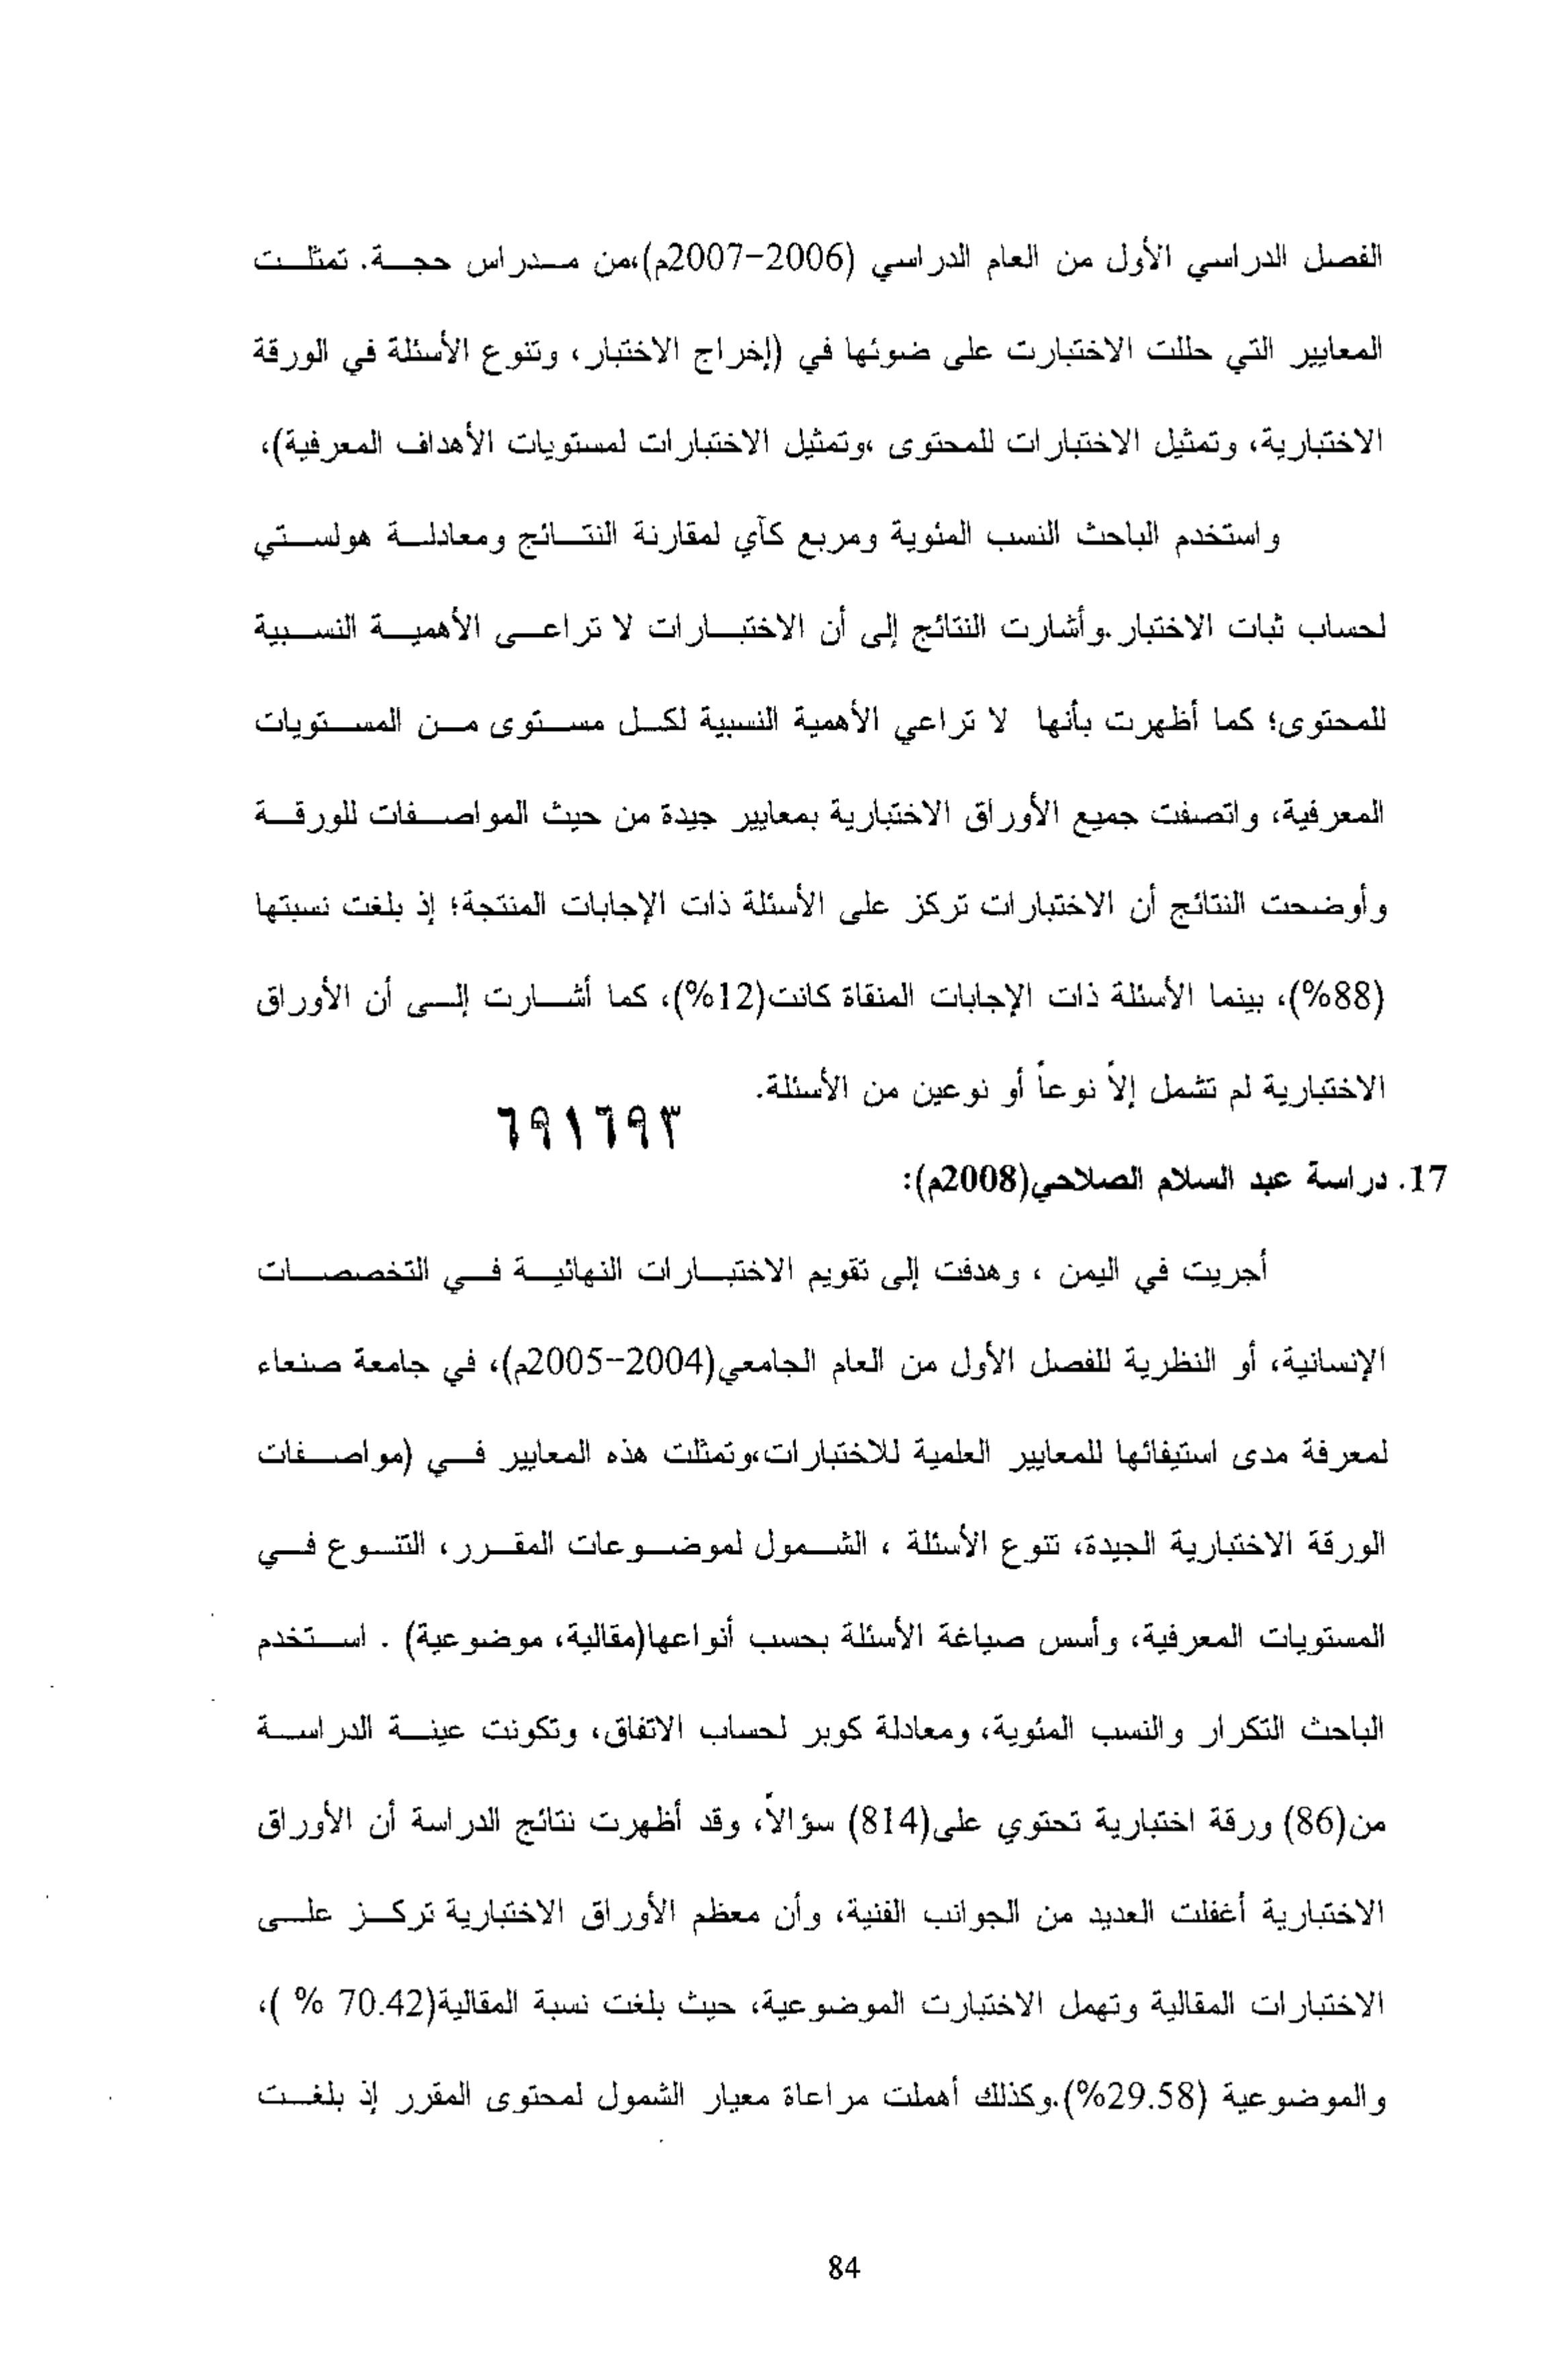 الفصل الدراسي الأول من العام الدراسي (2006-2007م)،من مدراس حجة. تمثلت
المعايير التي حللت الاختبارت على ضوئها في (إخراج الاختبار، وتنوع الأسئلة في الورقة
الاختبارية، وتمثيل الاختبارات للمحتوى ،وتمثيل الاختبارات لمستويات الأهداف المعرفية)،
واستخدم الباحث النسب المئوية ومربع كآي لمقارنة النتائج ومعادلة هولستي
لحساب ثبات الاختبار.وأشارت النتائج إلى أن الاختبارات لا تراعى الأهمية النسبية
للمحتوى؛ كما أظهرت بأنها لا تراعي الأهمية النسبية لكل مستوى من المستويات
المعرفية، واتصفت جميع الأوراق الاختبارية بمعايير جيدة من حيث المواصفات للورقة
وأوضحت النتائج أن الاختبارات تركز على الأسئلة ذات الإجابات المنتجة؛ إذ بلغت نسبتها
(88%)، بينما الأسئلة ذات الإجابات المنقاة كانت(12%)، كما أشارت إلى أن الأوراق
الاختبارية لم تشمل إلاَ نوعاَ أو نوعين من الأسئلة.
٦٩١٦٩٣
17. دراسة عبد السلام الصلاحي(2008م):
أجريت في اليمن ، وهدفت إلى تقويم الاختبارات النهائية في التخصصات
الإنسانية، أو النظرية للفصل الأول من العام الجامعي(2004-2005م)، في جامعة صنعاء
لمعرفة مدى استيفائها للمعايير العلمية للاختبارات،وتمثلت هذه المعايير في (مواصفات
الورقة الاختبارية الجيدة، تنوع الأسئلة ، الشمول لموضوعات المقرر، التنوع في
المستويات المعرفية، وأسس صياغة الأسئلة بحسب أنواعها(مقالية، موضوعية) . استخدم
الباحث التكرار والنسب المئوية، ومعادلة كوبر لحساب الاتفاق، وتكونت عينة الدراسة
من(86) ورقة اختبارية تحتوي على(814) سؤالاَ، وقد أظهرت نتائج الدراسة أن الأوراق
الاختبارية أغفلت العديد من الجوانب الفنية، وأن معظم الأوراق الاختبارية تركز على
الاختبارات المقالية وتهمل الاختبارت الموضوعية، حيث بلغت نسبة المقالية(70.42 % )،
والموضوعية (29.58%).وكذلك أهملت مراعاة معيار الشمول لمحتوى المقرر إذ بلغت
84